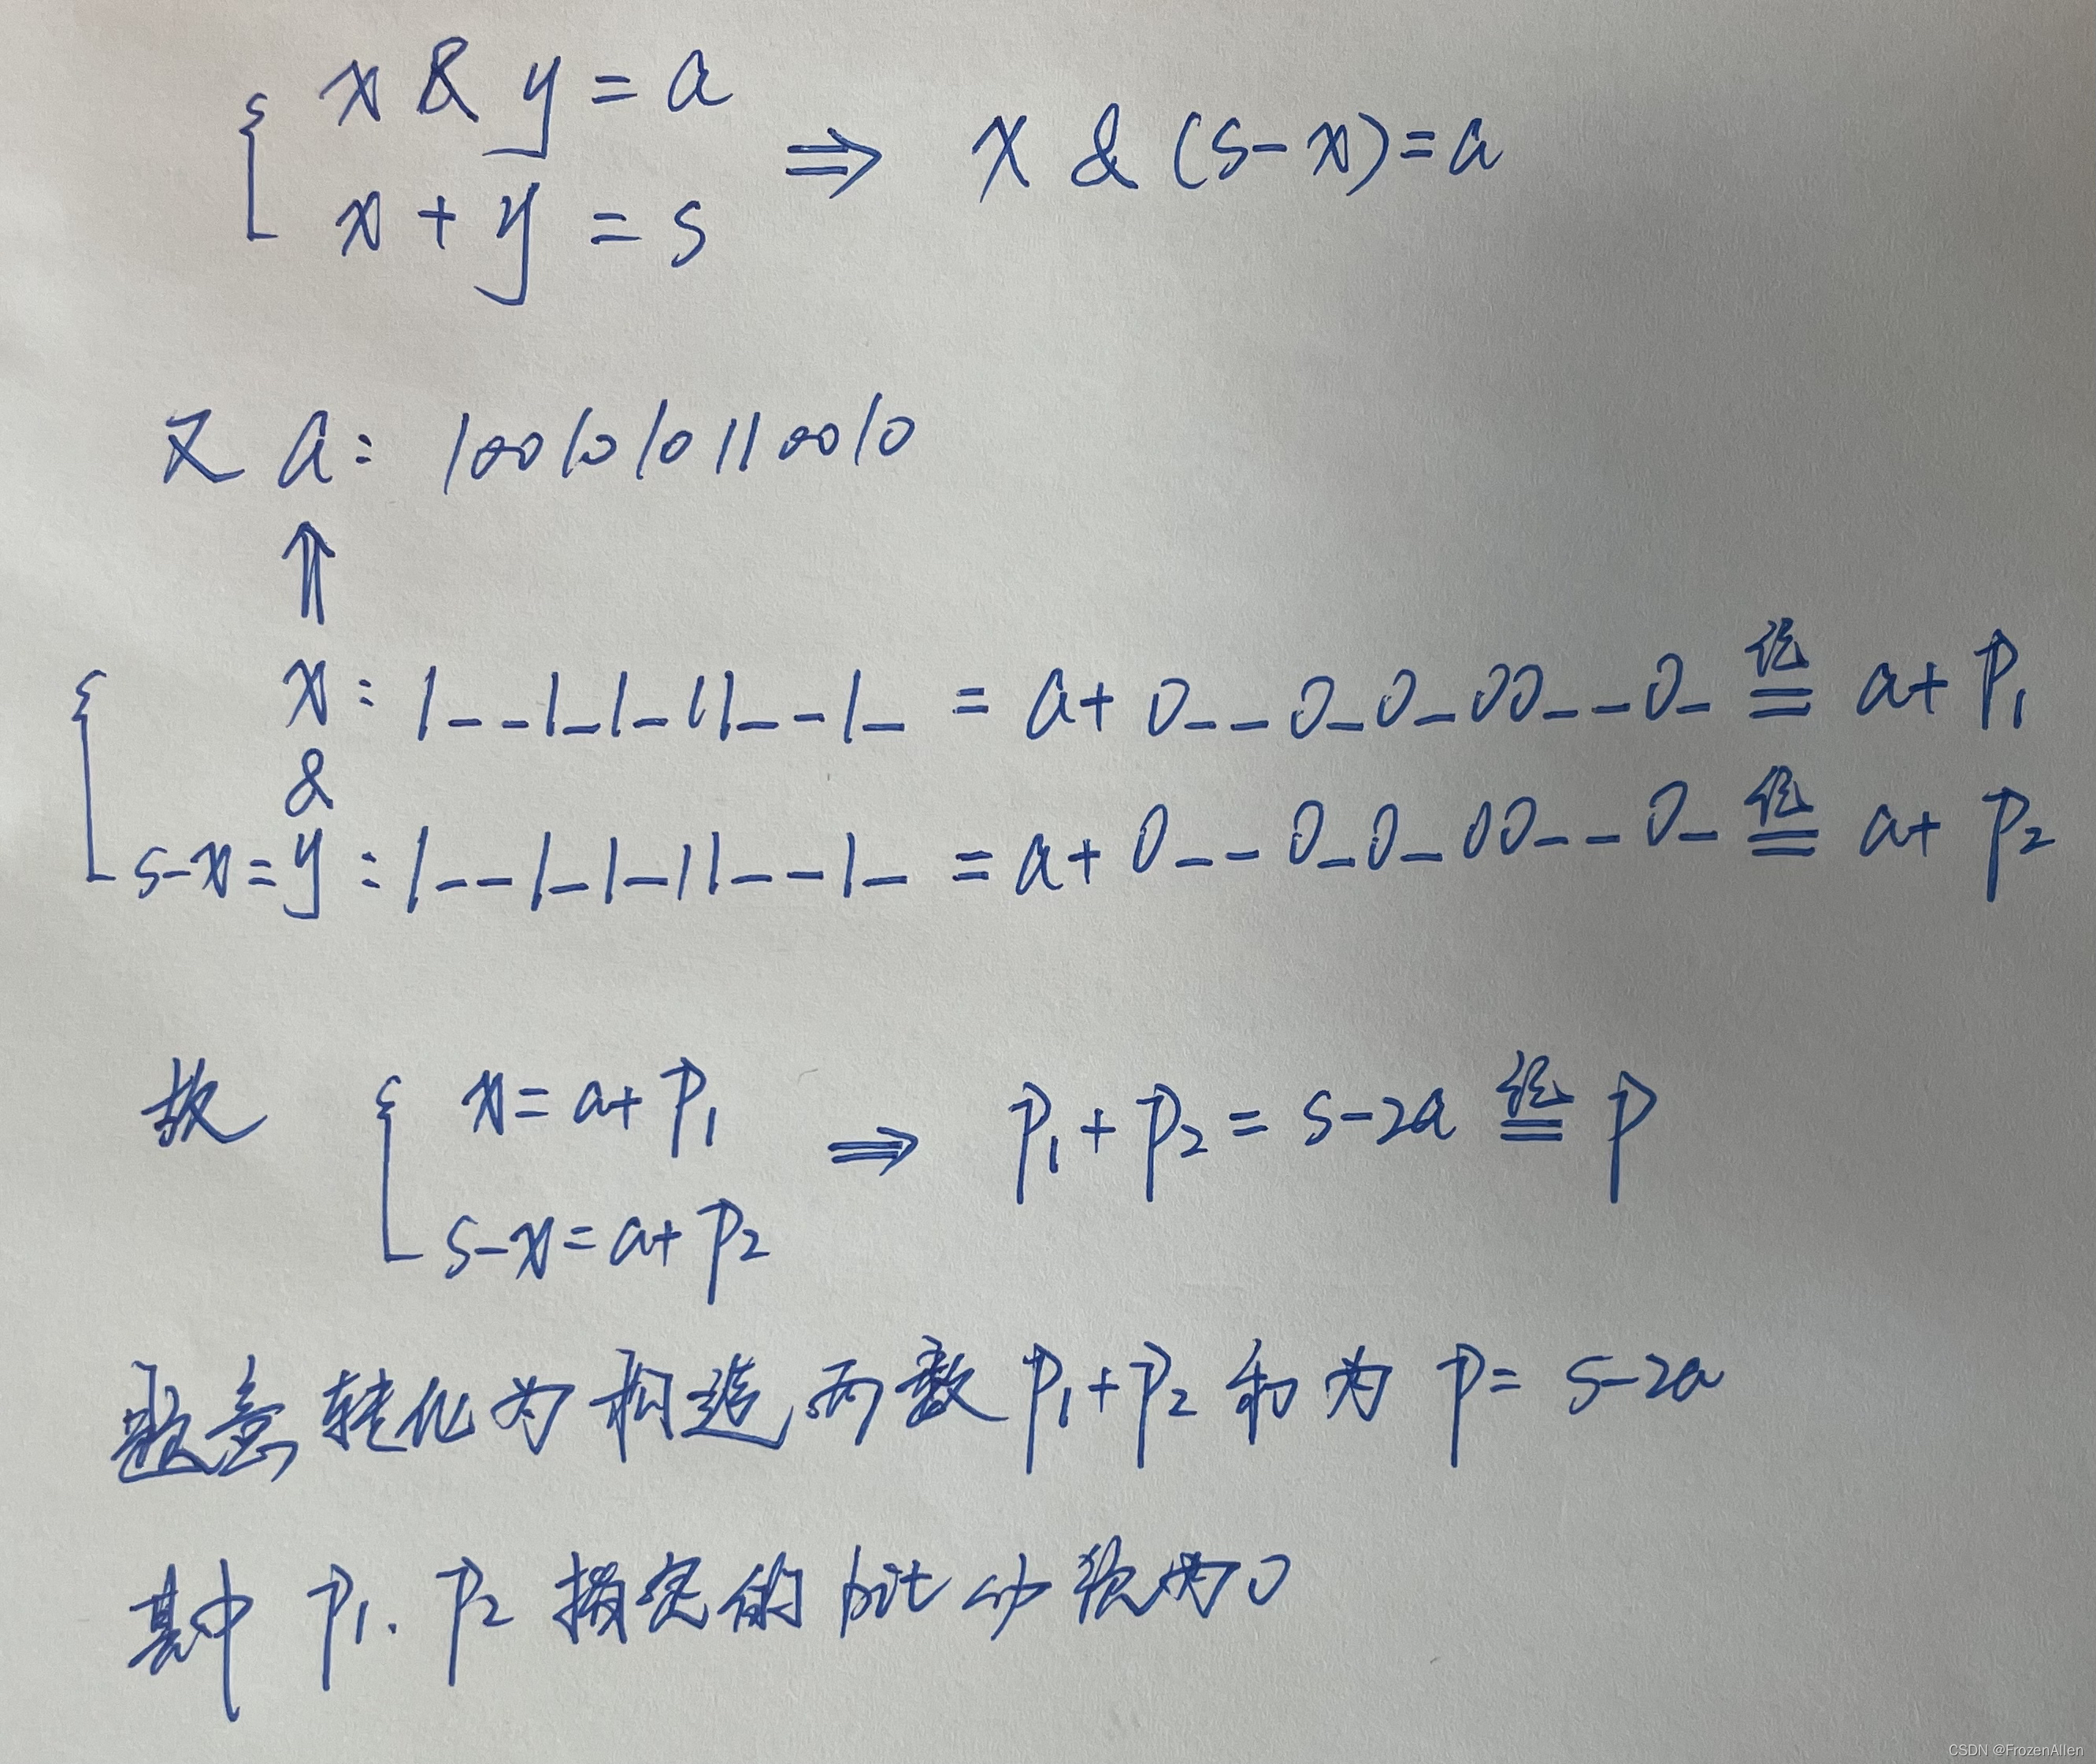 x & y = a
⇒ x & (s-x) = a
x + y = s
又 a: 1001010110010
⇑
x: 1__1_1_11__1_ = a+ 0__0_0_00__0_ 记= a+ P₁
&
s-x=y: 1__1_1_11__1_ = a+ 0__0_0_00__0_ 记= a+ P₂
故 x= a+ P₁ ⇒ P₁+P₂ = s-2a 记= P
s-x= a+ P₂
题意转化为构造两数P₁+P₂和为P= s-2a
其中 P₁、P₂ 指定的bit必须为0
CSDN @FrozenAllen